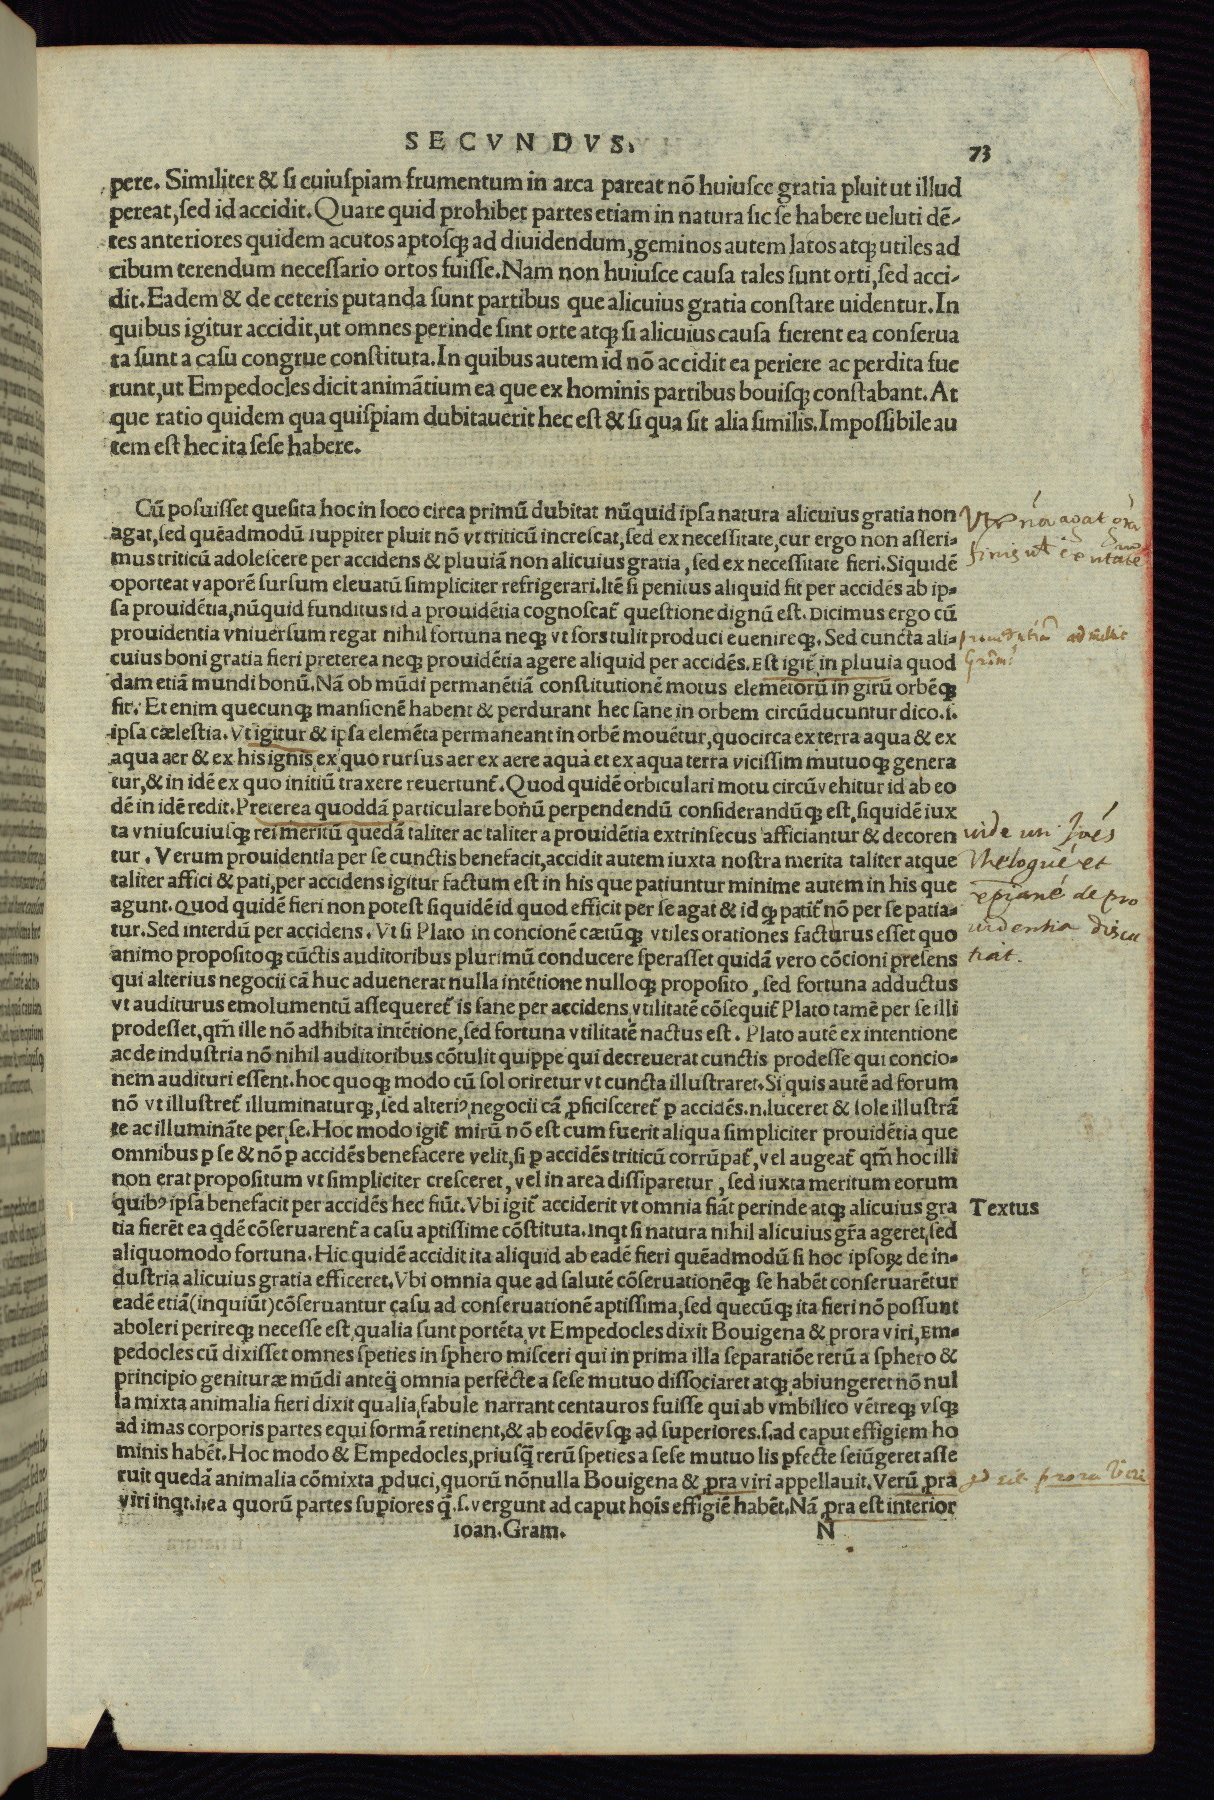 SECVNDVS.
73
pere. Similiter & si cuiuſpiam frumentum in arca pareat nõ huiuſce gratia pluit ut illud
pereat, ſed id accidit. Quare quid prohibet partes etiam in natura ſic ſe habere ueluti dẽ-
tes anteriores quidem acutos aptoſqꝫ ad diuidendum, geminos autem latos atqꝫ utiles ad
cibum terendum neceſſario ortos fuiſſe. Nam non huiuſce cauſa tales ſunt orti, ſed acci-
dit. Eadem & de ceteris putanda ſunt partibus que alicuius gratia conſtare uidentur. In
quibus igitur accidit, ut omnes perinde ſint orte atqꝫ ſi alicuius cauſa fierent ea conſerua
ta ſunt a caſu congrue conſtituta. In quibus autem id nõ accidit ea periere ac perdita fue
runt, ut Empedocles dicit animãtium ea que ex hominis partibus bouiſqꝫ conſtabant. At
que ratio quidem qua quiſpiam dubitauerit hec eſt & ſi qua ſit alia ſimilis. Impoſſibile au
tem eſt hec ita ſeſe habere.
Cũ poſuiſſet queſita hoc in loco circa primũ dubitat nũquid ipſa natura alicuius gratia non
agat, ſed quẽadmodũ Iuppiter pluit nõ vt triticũ increſcat, ſed ex neceſſitate, cur ergo non aſſeri-
mus triticũ adoleſcere per accidens & pluuiã non alicuius gratia, ſed ex neceſſitate fieri. Siquidẽ
oporteat vaporẽ ſurſum eleuatũ ſimpliciter refrigerari. Itẽ ſi penitus aliquid fit per accidẽs ab ip-
ſa prouidẽtia, nũquid funditus id a prouidẽtia cognoſcat̃ queſtione dignũ eſt. Dicimus ergo cũ
prouidentia vniuerſum regat nihil fortuna neqꝫ vt fors tulit produci euenireqꝫ. Sed cuncta ali-
cuius boni gratia fieri preterea neqꝫ prouidẽtia agere aliquid per accidẽs. Eſt igit̃ in pluuia quod
dam etiã mundi bonũ. Nã ob mũdi permanẽtiã conſtitutionẽ motus elemẽtorũ in girũ orbẽqꝫ
fit. Et enim quecunqꝫ manſionẽ habent & perdurant hec ſane in orbem circũducuntur dico.ſ.
ipſa cæleſtia. Vt igitur & ipſa elemẽta permaneant in orbẽ mouẽtur, quocirca ex terra aqua & ex
aqua aer & ex his ignis ex quo rurſus aer ex aere aqua et ex aqua terra viciſſim mutuoqꝫ genera
tur, & in idẽ ex quo initiũ traxere reuertunt̃. Quod quidẽ orbiculari motu circũvehitur id ab eo
dẽ in idẽ redit. Preterea quoddã particulare bonũ perpendendũ conſiderandũqꝫ eſt, ſiquidẽ iux
ta vniuſcuiuſqꝫ rei meritũ quedã taliter ac taliter a prouidẽtia extrinſecus afficiantur & decoren
tur. Verum prouidentia per ſe cunctis benefacit, accidit autem iuxta noſtra merita taliter atque
taliter affici & pati, per accidens igitur factum eſt in his que patiuntur minime autem in his que
agunt. Quod quidẽ fieri non poteſt ſiquidẽ id quod efficit per ſe agat & id qꝫ patit̃ nõ per ſe patia-
tur. Sed interdũ per accidens. Vt ſi Plato in concionẽ cætũqꝫ vtiles orationes facturus eſſet quo
animo propoſitoqꝫ cũctis auditoribus plurimũ conducere ſperaſſet quidã vero cõcioni preſens
qui alterius negocii cã huc aduenerat nulla intẽtione nulloqꝫ propoſito, ſed fortuna adductus
vt auditurus emolumentũ aſſequeret̃ is ſane per accidens vtilitatẽ cõſequit̃ Plato tamẽ per ſe illi
prodeſſet, qm̃ ille nõ adhibita intẽtione, ſed fortuna vtilitatẽ nactus eſt. Plato autẽ ex intentione
ac de induſtria nõ nihil auditoribus cõtulit quippe qui decreuerat cunctis prodeſſe qui concio-
nem audituri eſſent. hoc quoqꝫ modo cũ ſol oriretur vt cuncta illuſtraret. Si quis autẽ ad forum
nõ vt illuſtret̃ illuminaturqꝫ, ſed alteriꝰ negocii cã ꝓficiſceret̃ ꝑ accidẽs.n. luceret & ſole illuſtrã
te ac illuminãte per ſe. Hoc modo igit̃ mirũ nõ eſt cum fuerit aliqua ſimpliciter prouidẽtia que
omnibus ꝑ ſe & nõ ꝑ accidẽs benefacere velit, ſi ꝑ accidẽs triticũ corrũpat̃, vel augeat̃ qm̃ hoc illi
non erat propoſitum vt ſimpliciter creſceret, vel in area diſſiparetur, ſed iuxta meritum eorum
quibꝰ ipſa benefacit per accidẽs hec fiũt. Vbi igit̃ acciderit vt omnia fiãt perinde atqꝫ alicuius gra
tia fierẽt ea q̃dẽ cõſeruarent̃ a caſu aptiſſime cõſtituta. Inqt ſi natura nihil alicuius gr̃a ageret, ſed
aliquomodo fortuna. Hic quidẽ accidit ita aliquid ab eadẽ fieri quẽadmodũ ſi hoc ipſoꝝ de in-
duſtria alicuius gratia efficeret. Vbi omnia que ad ſalutẽ cõſeruationẽqꝫ ſe habẽt conſeruarẽtur
eadẽ etiã (inquiũt) cõſeruantur caſu ad conſeruationẽ aptiſſima, ſed quecũqꝫ ita fieri nõ poſſunt
aboleri perireqꝫ neceſſe eſt qualia ſunt portẽta vt Empedocles dixit Bouigena & prora viri, Em-
pedocles cũ dixiſſet omnes ſpeties in ſphero miſceri qui in prima illa ſeparatiõe rerũ a ſphero &
principio genituræ mũdi anteq̃ omnia perfecte a ſeſe mutuo diſſociaret atqꝫ abiungeret nõ nul
la mixta animalia fieri dixit qualia fabule narrant centauros fuiſſe qui ab vmbilico vẽtreqꝫ vſqꝫ
ad imas corporis partes equi formã retinent, & ab eodẽ vſqꝫ ad ſuperiores.ſ. ad caput effigiem ho
minis habẽt. Hoc modo & Empedocles, priuſq̃ rerũ ſpeties a ſeſe mutuo lis ꝑfecte ſeiũgeret aſſe
ruit quedã animalia cõmixta ꝓduci, quorũ nõnulla Bouigena & ꝓra viri appellauit. Verũ ꝓra
viri inqt.i. ea quorũ partes ſupiores q̃.ſ. vergunt ad caput hoĩs effigiẽ habẽt. Nã ꝓra eſt interior
Ioan. Gram.
N
Textus
agat
finis
uide
de pro
uidentia
prora viri